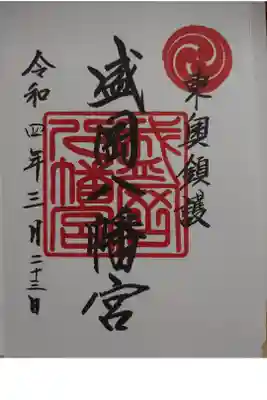 東奥鎮護
盛岡八幡宮
盛岡八幡宮
令和四年三月二十三日